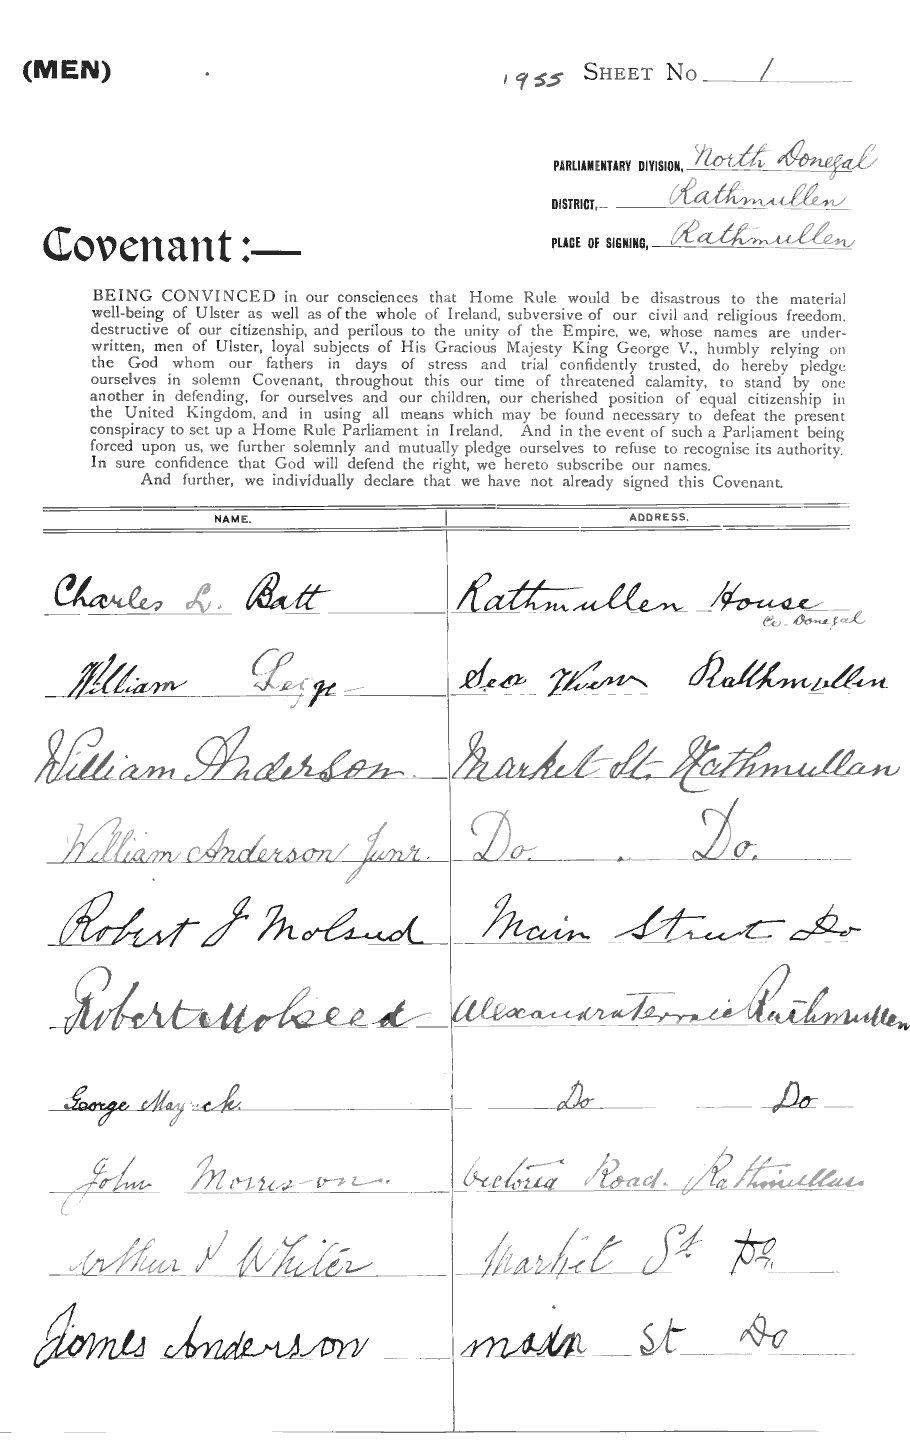 (MEN)
1955 SHEET No 1
PARLIAMENTARY DIVISION, North Donegal
DISTRICT, Rathmullen
PLACE OF SIGNING, Rathmullen
Covenant :—
BEING CONVINCED in our consciences that Home Rule would be disastrous to the material
well-being of Ulster as well as of the whole of Ireland, subversive of our civil and religious freedom,
destructive of our citizenship, and perilous to the unity of the Empire, we, whose names are under-
written, men of Ulster, loyal subjects of His Gracious Majesty King George V., humbly relying on
the God whom our fathers in days of stress and trial confidently trusted, do hereby pledge
ourselves in solemn Covenant, throughout this our time of threatened calamity, to stand by one
another in defending, for ourselves and our children, our cherished position of equal citizenship in
the United Kingdom, and in using all means which may be found necessary to defeat the present
conspiracy to set up a Home Rule Parliament in Ireland. And in the event of such a Parliament being
forced upon us, we further solemnly and mutually pledge ourselves to refuse to recognise its authority.
In sure confidence that God will defend the right, we hereto subscribe our names.
And further, we individually declare that we have not already signed this Covenant.
NAME. ADDRESS.
Charles L. Batt Rathmullen House
Co. Donegal
William Sea View Rathmullen
William Anderson Market St. Rathmullan
William Anderson Junr. Do. Do.
Robert J Molseed Main Street Do
Robert Molseed Alexandra Terrace Rathmullen
George Do Do
John Morrison Victoria Road. Rathmullan
Arthur Market St Do.
James Anderson main St Do